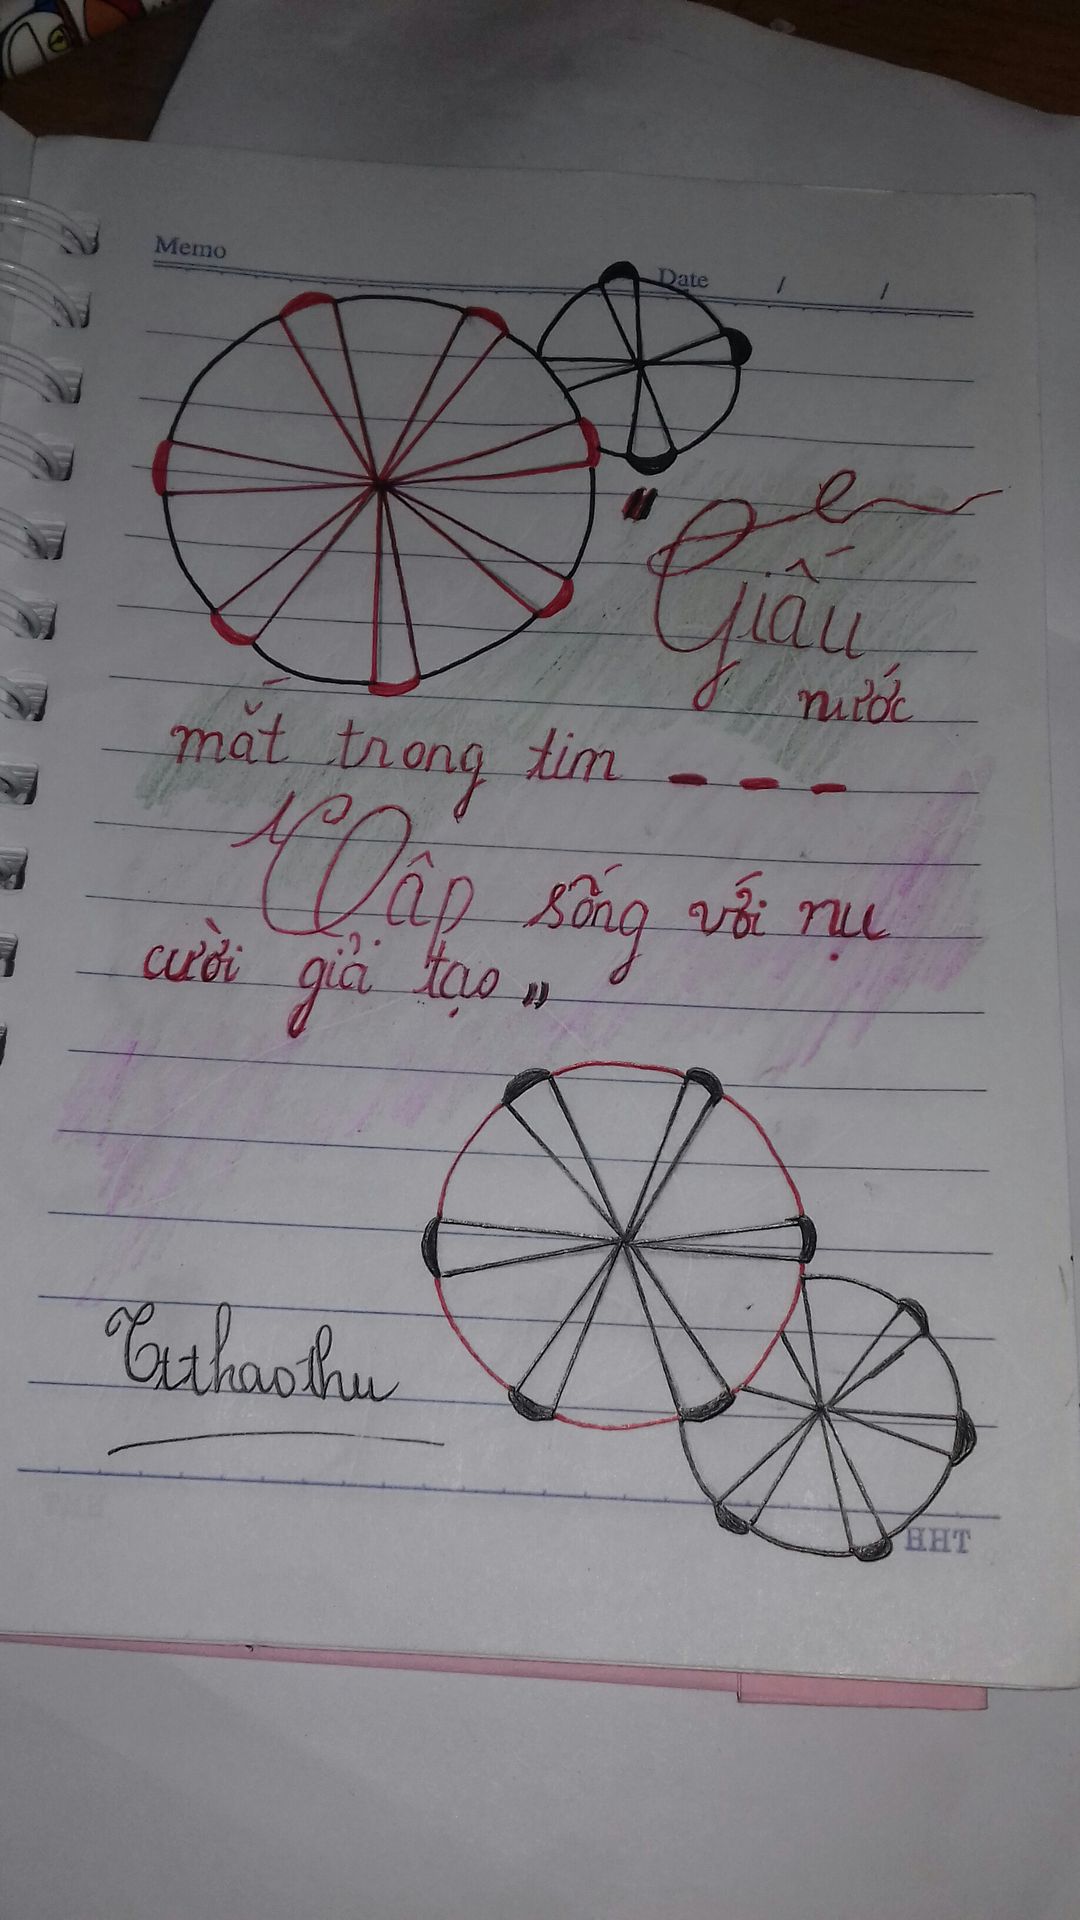 Memo
Date / /
" Giấu
nước
mắt trong tim _ _ _
Vấp sống với nụ
cười giả tạo "
Ttthaothu
HHT